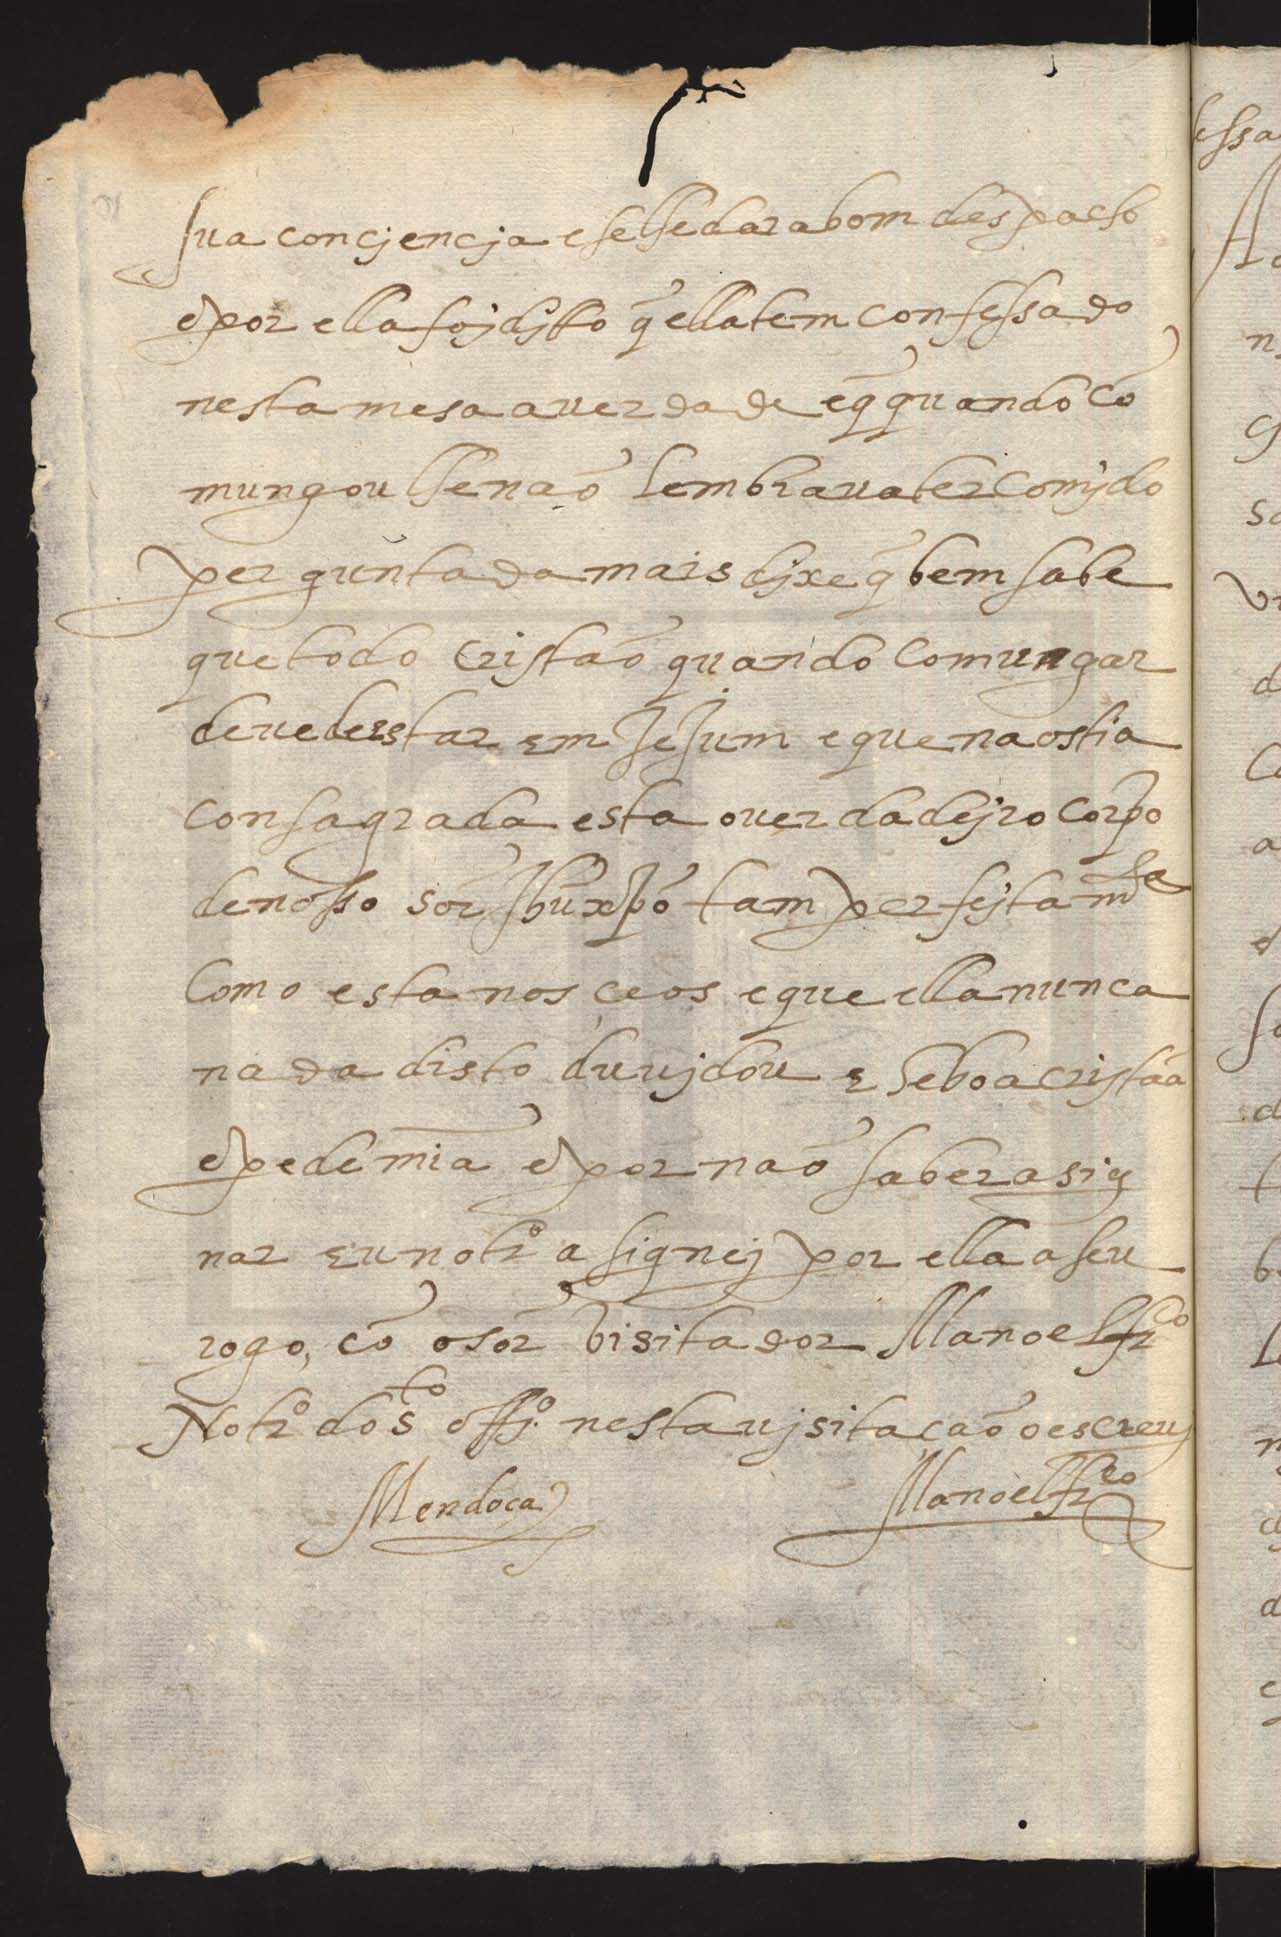 sua concjencja e se lhe dara bom despacho
e por ella foj djtto q̃ ella tem confessado
nesta mesa a uerdade e q̃ quando cõ
mungou lhe naõ lembraua ter comjdo
perguntada mais djxe q̃ bem sabe
que todo cristaõ quando comungar
deue de estar em Jejum e que na ostia
consagrada esta o uerdadejro corpo
de nosso sõr Jhũ xp̃o tam perfejtamte
como esta nos çeos e que ella nunca
nada disto duujdou e he boa cristãa
e pede mĩa e por naõ saber asig
nar eu notro asignej por ella a seu
rogo, cõ o sõr visitador Manoel frco
Notro do sto offo. nesta vjsitaçaõ o escreuj
Mendoça Manoel frco